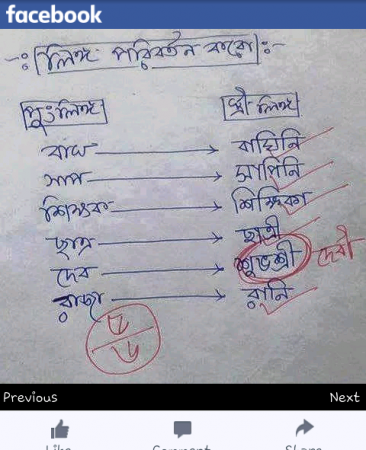 facebook
-ঃ লিঙ্গ পরিবর্তন করো ঃ-
পুংলিঙ্গ → স্ত্রী লিঙ্গ
বাঘ → বাঘিনি
সাপ → সাপিনি
শিক্ষক → শিক্ষিকা
ছাত্র → ছাত্রী
দেব → শুভশ্রী দেবী
রাজা → রানি
Previous Next
Like Comment Share